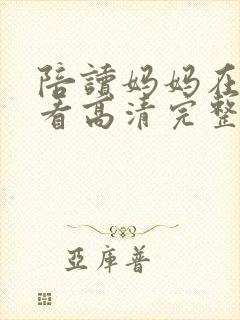 陪讀妈妈在
看高清完整
亞庫普